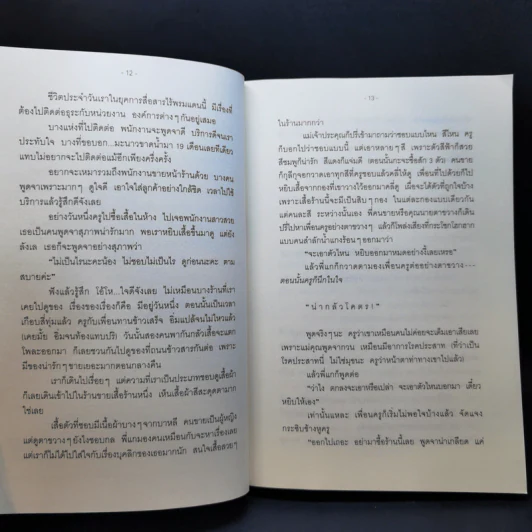 - 12 -
ชีวิตประจำวันเราในยุคการสื่อสารไร้พรมแดนนี้ มีเรื่องที่
ต้องไปติดต่อธุระกับหน่วยงาน องค์การต่างๆ กันอยู่เสมอ
บางแห่งที่ไปติดต่อ พนักงานจะพูดจาดี บริการดีจนเรา
ประทับใจ บางที่ขอบอก...มะนาวขาดน้ำมา 19 เดือนเลยทีเดียว
แทบไม่อยากจะไปติดต่อแม้อีกเพียงครึ่งครั้ง
อยากจะเหมารวมถึงพนักงานขายหน้าร้านด้วย บางคน
พูดจาเพราะมากๆ ดูใจดี เอาใจใส่ลูกค้าอย่างใกล้ชิด เวลาไปใช้
บริการแล้วรู้สึกดีจังเลย
อย่างวันหนึ่งครูไปซื้อเสื้อในห้าง ไปเจอพนักงานสาวสวย
เธอเป็นคนพูดจาสุภาพน่ารักมาก พอเราหยิบเสื้อขึ้นมาดู แต่ยัง
ลังเล เธอก็จะพูดอย่างสุภาพว่า
“ไม่เป็นไรนะคะน้อง ไม่ชอบไม่เป็นไร ดูก่อนนะคะ ตาม
สบายค่ะ”
ฟังแล้วรู้สึก โอ้โห...ใจดีจังเลย ไม่เหมือนบางร้านที่เรา
เคยไปดูของ เรื่องของเรื่องก็คือ มีอยู่วันหนึ่ง ตอนนั้นเป็นเวลา
เกือบสี่ทุ่มแล้ว ครูกับเพื่อนทานข้าวเสร็จ อิ่มแปล้จนไม่ไหวแล้ว
(เคยมั้ย อิ่มจนท้องแทบปริ) วันนั้นสองคนพากันกลัวเสื้อจะแตก
โพละออกมา ก็เลยชวนกันไปดูของที่ถนนข้าวสารกันต่อ เพราะ
มีของน่ารักๆ ขายเยอะมากตอนกลางคืน
เราก็เดินไปเรื่อยๆ แต่ความที่เราเป็นประเภทชอบดูเสื้อผ้า
ก็เลยเดินเข้าไปในร้านขายเสื้อร้านหนึ่ง เห็นเสื้อผ้าสีสะดุดตามาก
ใช่เลย
เสื้อตัวที่ชอบมีเนื้อผ้าบางๆ จากบาหลี คนขายเป็นผู้หญิง
แต่ดูตาขวางๆ ยังไงชอบกล พี่แกมองคนเหมือนกับจะหาเรื่องเลย
แต่เราก็ไม่ได้ไปใส่ใจกับเรื่องบุคลิกของเธอมากนัก สนใจเสื้อสวยๆ
- 13 -
ในร้านมากกว่า
แม่เจ้าประคุณก็ปรี่เข้ามาถามว่าชอบแบบไหน สีไหน ครู
ก็บอกไปว่าชอบแบบนี้ แต่เอาหลายๆ สี เพราะตัวสีฟ้าก็สวย
สีชมพูก็น่ารัก สีแดงก็แจ่มดี (ตอนนั้นกะจะซื้อสัก 3 ตัว) คนขาย
ก็กุลีกุจอกวาดเอาทุกสีที่ครูชอบแล้วคลี่ให้ดู เพื่อนที่ไปด้วยก็ไป
หยิบเสื้อจากกองที่เขาวางไว้ออกมาคลี่ดู เผื่อจะได้ตัวที่ถูกใจบ้าง
เพราะเสื้อร้านนี้จะมีเป็นสิบๆ กอง ในแต่ละกองแบบเดียวกัน
แต่คนละสี ระหว่างนั้นเอง พี่คนขายหรือคุณนายตาขวางก็เดิน
ปรี่ไปหาเพื่อนครูอย่างตาขวางๆ แล้วก็โพล่งเสียงที่กระโชกโฮกฮาก
แบบคนสำลักน้ำแกงร้อนๆ ออกมาว่า
“จะเอาตัวไหน หยิบออกมาหมดอย่างนี้เลยเหรอ”
แล้วพี่แกก็กวาดตามองเพื่อนครูต่ออย่างตาขวาง---
ตอนนั้นครูก็นึกในใจ
“น่ากลัวโคตร!”
พูดจริงๆ นะ ครูว่าเขาเหมือนคนไม่ค่อยจะเต็มเอาเสียเลย
เพราะแม่คุณพูดจากวน เหมือนมีอาการโรคประสาท (ที่ว่าเป็น
โรคประสาทนี่ ไม่ใช่มุขนะ ครูว่าหน้าตาท่าทางเขาไปแล้ว)
แล้วพี่แกก็พูดต่อ
“ว่าไง ตกลงจะเอาหรือเปล่า จะเอาตัวไหนบอกมา เดี๋ยว
หยิบให้เอง”
เท่านั้นแหละ เพื่อนครูก็เริ่มไม่พอใจบ้างแล้ว จัดแจง
กระซิบข้างหูครู
“ออกไปเถอะ อย่ามาซื้อร้านนี้เลย พูดจาน่าเกลียด แค่